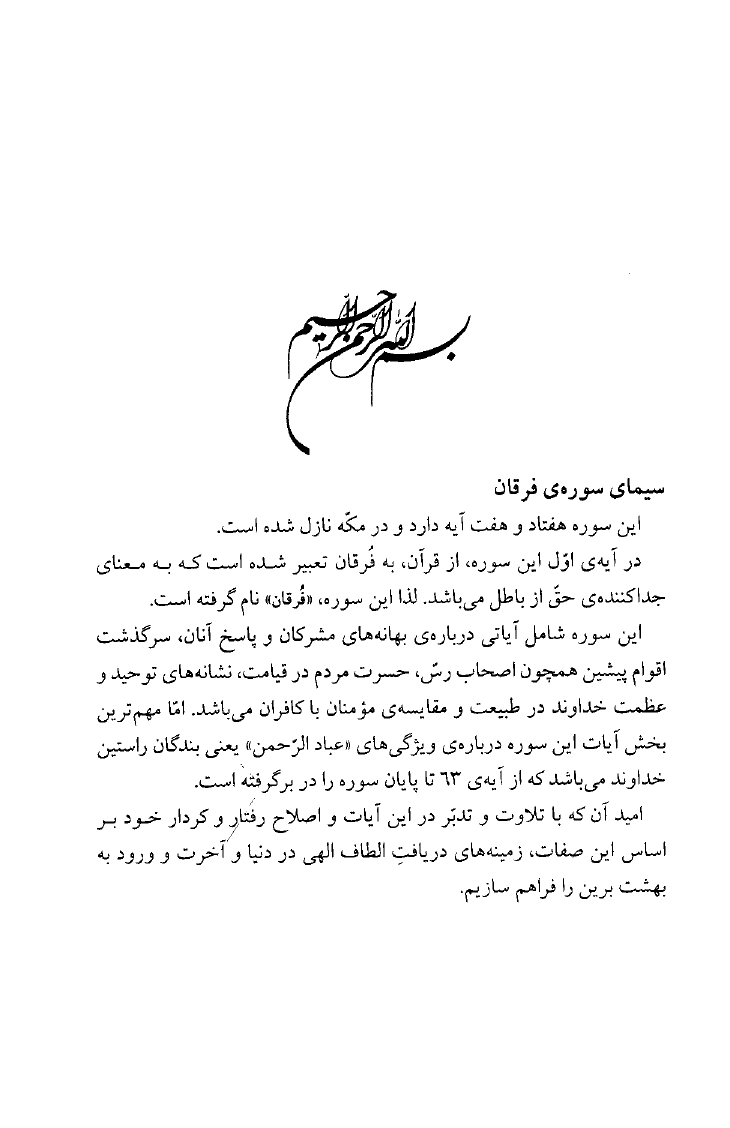 بسم الله الرحمن الرحیم
سیمای سوره‌ی فرقان
این سوره هفتاد و هفت آیه دارد و در مکّه نازل شده است.
در آیه‌ی اوّل این سوره، از قرآن، به فُرقان تعبیر شده است که به معنای
جداکننده‌ی حقّ از باطل می‌باشد. لذا این سوره، «فُرقان» نام گرفته است.
این سوره شامل آیاتی درباره‌ی بهانه‌های مشرکان و پاسخ آنان، سرگذشت
اقوام پیشین همچون اصحاب رسّ، حسرت مردم در قیامت، نشانه‌های توحید و
عظمت خداوند در طبیعت و مقایسه‌ی مؤمنان با کافران می‌باشد. امّا مهم‌ترین
بخش آیات این سوره درباره‌ی ویژگی‌های «عباد الرّحمن» یعنی بندگان راستین
خداوند می‌باشد که از آیه‌ی ۶۳ تا پایان سوره را در برگرفته است.
امید آن که با تلاوت و تدبّر در این آیات و اصلاح رفتار و کردار خود بر
اساس این صفات، زمینه‌های دریافتِ الطاف الهی در دنیا و آخرت و ورود به
بهشت برین را فراهم سازیم.